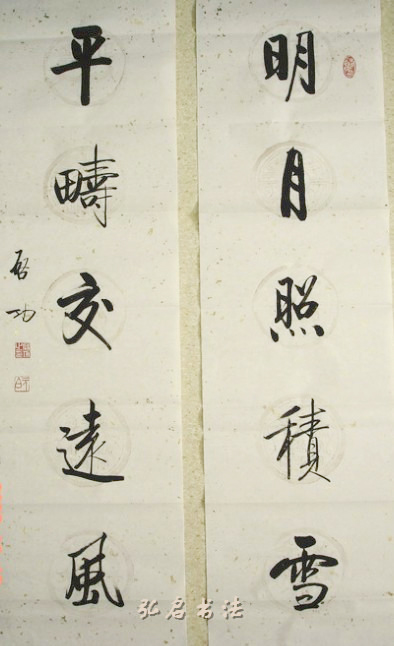 明月照積雪
平疇交遠風
啓功
弘启书法